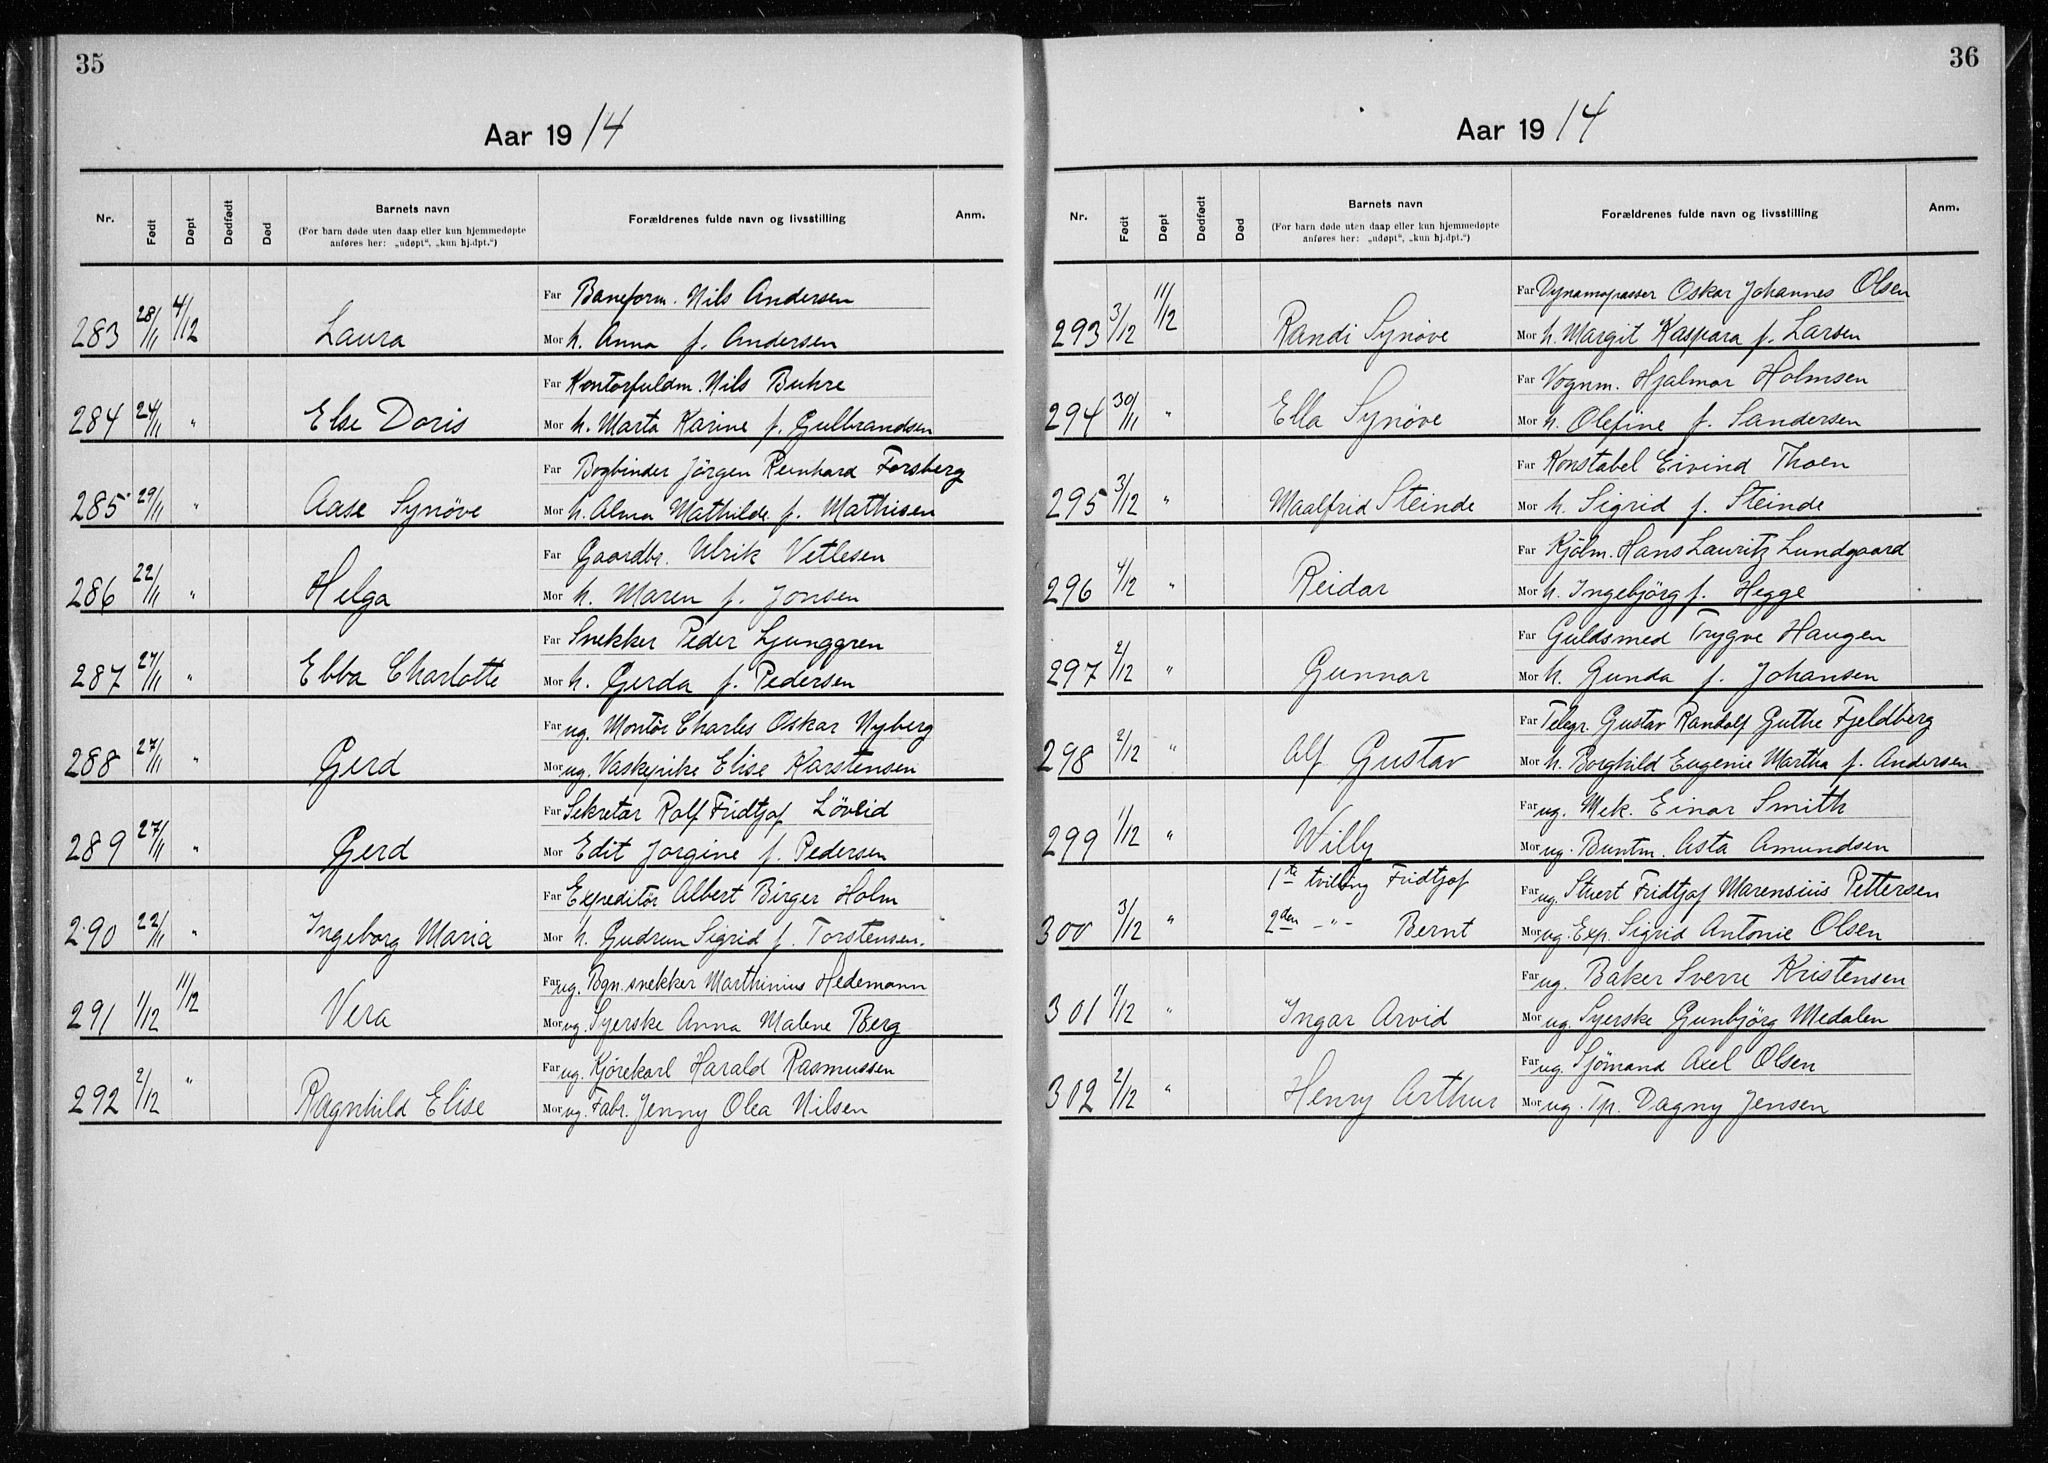 35
Aar 1914
Nr. Født Døpt Dødfødt Død Barnets navn Forældrenes fulde navn og livsstilling Anm.
(For barn døde uten daap eller kun hjemmedøpte
anføres her: „udøpt“, „kun hj.dpt.“)
Far Baneform. Nils Andersen
283 28/11 4/12 Laura Mor h. Anna f. Andersen
Far Kontorfuldm. Nils Buhre
284 24/11 " Else Doris Mor h. Marta Karine f. Gulbrandsen
Far Bogbinder Jörgen Reinhard Forsberg
285 29/11 " Aase Synøve Mor h. Alma Mathilde f. Mathisen
Far Gaardbr. Ulrik Vetlesen
286 22/11 " Helga Mor h. Maren f. Jonsen
Far Snekker Peder Ljunggren
287 27/11 " Ebba Charlotte Mor h. Gerda f. Pedersen
Far ug. Montör Charles Oskar Nyberg
288 27/11 " Gerd Mor ug. Vaskepike Elise Karstensen
Far Sekretær Rolf Fridtjof Lövlid
289 27/11 " Gerd Mor Edit Jorgine f. Pedersen
Far Expeditör Albert Birger Holm
290 22/11 " Ingeborg Maria Mor h. Gudrun Sigrid f. Torstensen.
Far ug. Bgn.snekker Marthinius Hedemann
291 1/12 11/12 Vera Mor ug. Syerske Anna Malene Berg
Far ug. Kjörekarl Harald Rasmussen
292 2/12 " Ragnhild Elise Mor ug. Fabr. Jenny Olea Nilsen
36
Aar 1914
Nr. Født Døpt Dødfødt Død Barnets navn Forældrenes fulde navn og livsstilling Anm.
(For barn døde uten daap eller kun hjemmedøpte
anføres her: „udøpt“, „kun hj.dpt.“)
Far Dynamopasser Oskar Johannes Olsen
293 3/12 11/12 Randi Synøve Mor h. Margit Kaspara f. Larsen
Far Vognm. Hjalmar Holmsen
294 30/11 " Ella Synøve Mor h. Olefine f. Sandersen
Far Konstabel Eivind Thoen
295 3/12 " Maalfrid Steinde Mor h. Sigrid f. Steinde
Far Kjölm. Hans Lauritz Lundgaard
296 4/12 " Reidar Mor h. Ingebjörg f. Hegge
Far Guldsmed Trygve Haugen
297 2/12 " Gunnar Mor h. Gunda f. Johansen
Far Telegr. Gustav Randolf Guthe Fjeldberg
298 2/12 " Alf Gustav Mor h. Borghild Eugenie Martha f. Andersen
Far ug. Mek. Einar Smith
299 1/12 " Willy Mor ug. Buntm. Asta Amundsen
1ste tvilling Fridtjof Far ug. Stuert Fridtjof Marensius Pettersen
300 3/12 " 2den -"- Bernt Mor ug. Exp. Sigrid Antonie Olsen
Far ug. Baker Sverre Kristensen
301 1/12 " Ingar Arvid Mor ug. Syerske Gunbjörg Medalen
Far ug. Sjömand Axel Olsen
302 2/12 " Henry Arthur Mor ug. Tp. Dagny Jensen